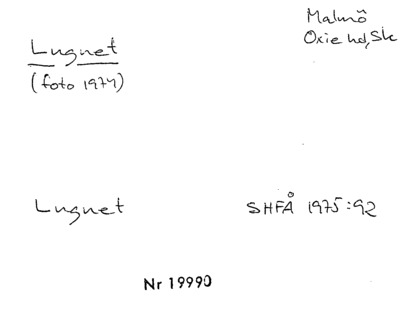 Malmö
Oxie hd, Sk
Lugnet
(foto 1974)
Lugnet
SHFÅ 1975:92
Nr 19990